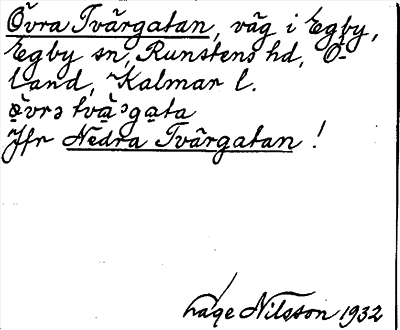 Övra Tvärgatan, väg i Egby,
Egby sn, Runstens hd, Ö-
land, Kalmar l.
Jfr Nedra Tvärgatan!
Nilsson 1932